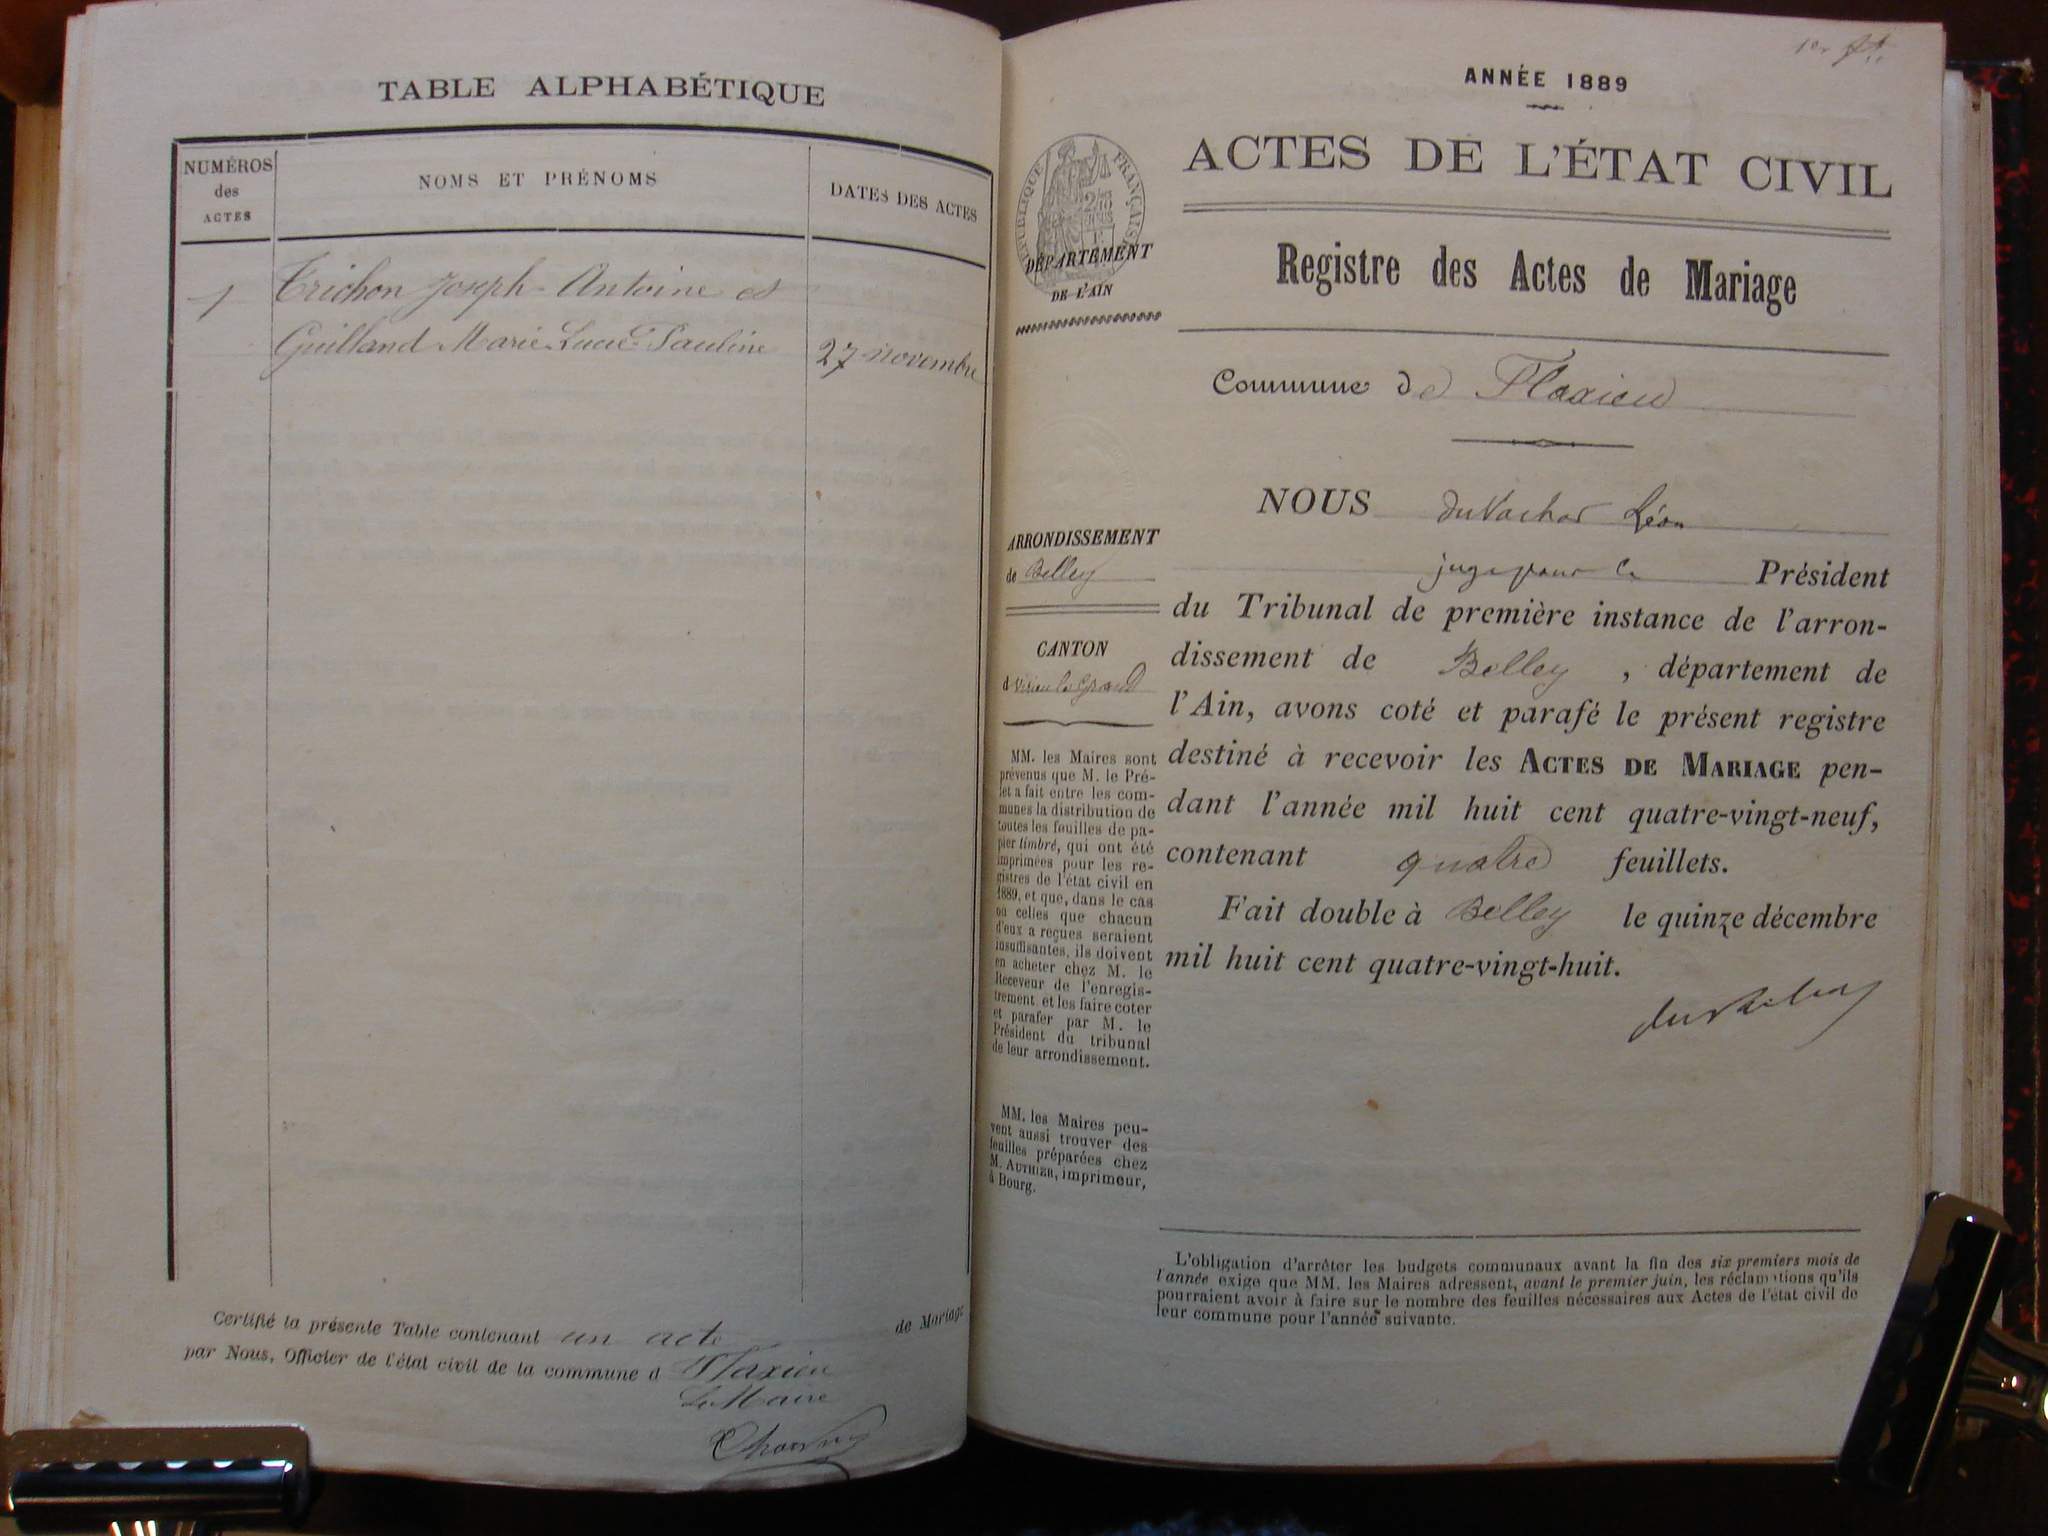 TABLE ALPHABÉTIQUE
NUMÉROS
des
ACTES
NOMS ET PRÉNOMS
DATES DES ACTES
1
Trichon Joseph-Antoine et
Guilland Marie Lucie Pauline
27 novembre
Certifié la présente Table contenant un acte de Mariage
par Nous, Officier de l'état civil de la commune d Flaxieu
Le Maire
1er
ANNÉE 1889
ACTES DE L'ÉTAT CIVIL
RÉPUBLIQUE FRANÇAISE
DÉPARTEMENT
DE L'AIN
Registre des Actes de Mariage
Commune de Flaxieu
ARRONDISSEMENT
de Belley
CANTON
d Virieu le Grand
MM. les Maires sont
prévenus que M. le Pré-
fet a fait entre les com-
munes la distribution de
toutes les feuilles de pa-
pier timbré, qui ont été
imprimées pour les re-
gistres de l'état civil en
1889, et que, dans le cas
où celles que chacun
d'eux a reçues seraient
insuffisantes, ils doivent
en acheter chez M. le
Receveur de l'enregis-
trement et les faire coter
et parafer par M. le
Président du tribunal
de leur arrondissement.
MM. les Maires peu-
vent aussi trouver des
feuilles préparées chez
M. AUTHIER, imprimeur,
à Bourg.
NOUS Léon
juge pour le Président
du Tribunal de première instance de l'arron-
dissement de Belley, département de
l'Ain, avons coté et parafé le présent registre
destiné à recevoir les ACTES DE MARIAGE pen-
dant l'année mil huit cent quatre-vingt-neuf,
contenant quatre feuillets.
Fait double à Belley le quinze décembre
mil huit cent quatre-vingt-huit.
L'obligation d'arrêter les budgets communaux avant la fin des six premiers mois de
l'année exige que MM. les Maires adressent, avant le premier juin, les réclamations qu'ils
pourraient avoir à faire sur le nombre des feuilles nécessaires aux Actes de l'état civil de
leur commune pour l'année suivante.